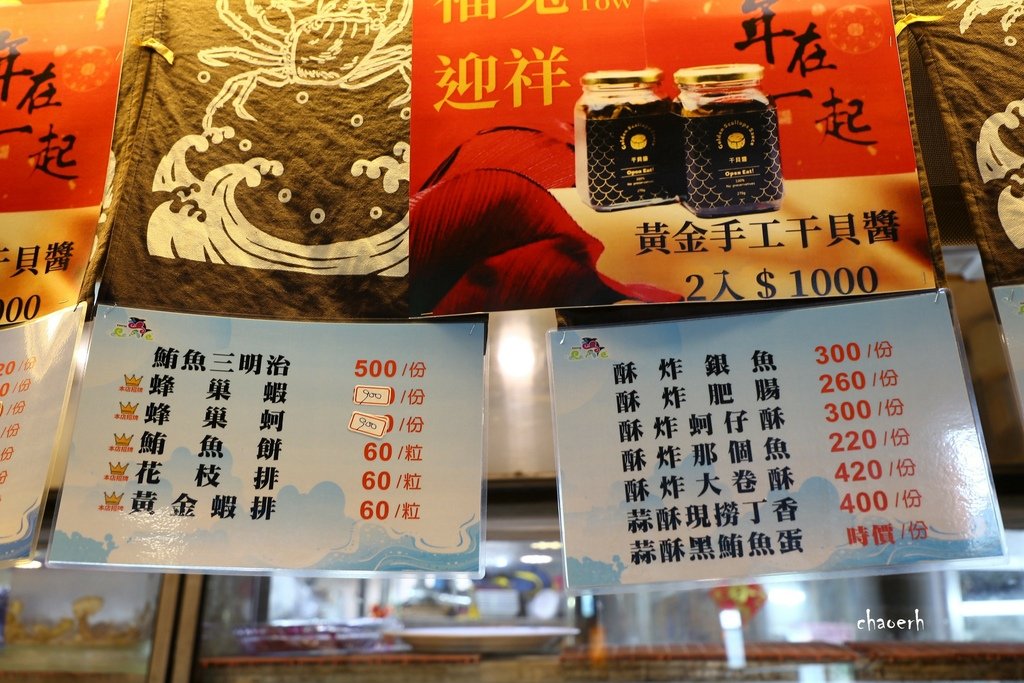 年在
一起
干貝醬
000
福兔
迎祥
年在
一起
干貝醬
Open Eat!
干貝醬
Open Eat!
黃金手工干貝醬
2入 $ 1000
鮪魚三明治 500/份
本店招牌 蜂巢蝦 900/份
本店招牌 蜂巢蚵 900/份
本店招牌 鮪魚餅 60/粒
本店招牌 花枝排 60/粒
本店招牌 黃金蝦排 60/粒
酥炸銀魚 300/份
酥炸肥腸 260/份
酥炸蚵仔酥 300/份
酥炸那個魚 220/份
酥炸大卷酥 420/份
蒜酥現撈丁香 400/份
蒜酥黑鮪魚蛋 時價/份
chaoerh